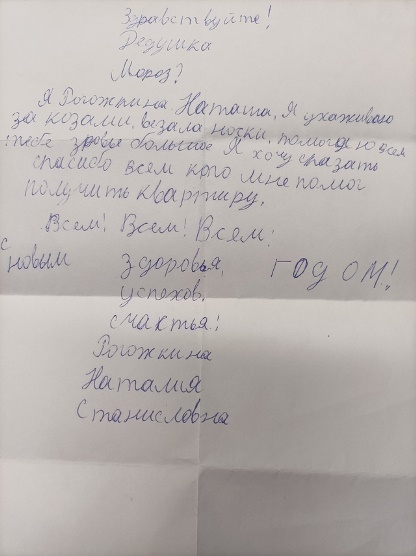 Здравствуйте!
Дедушка
Мороз?
Я Рогожкина Наташа, Я ухаживаю
за козами, везала носки, помогаю всем
тебе здровье большое Я хочу сразать
спасибо всем кого мне помог
получить квартиру.
Всем! Всем! Всем!
с
новым здоровья, ГОД ОМ!
успехов,
счастья!
Рогожкина
Наталия
Станисловна